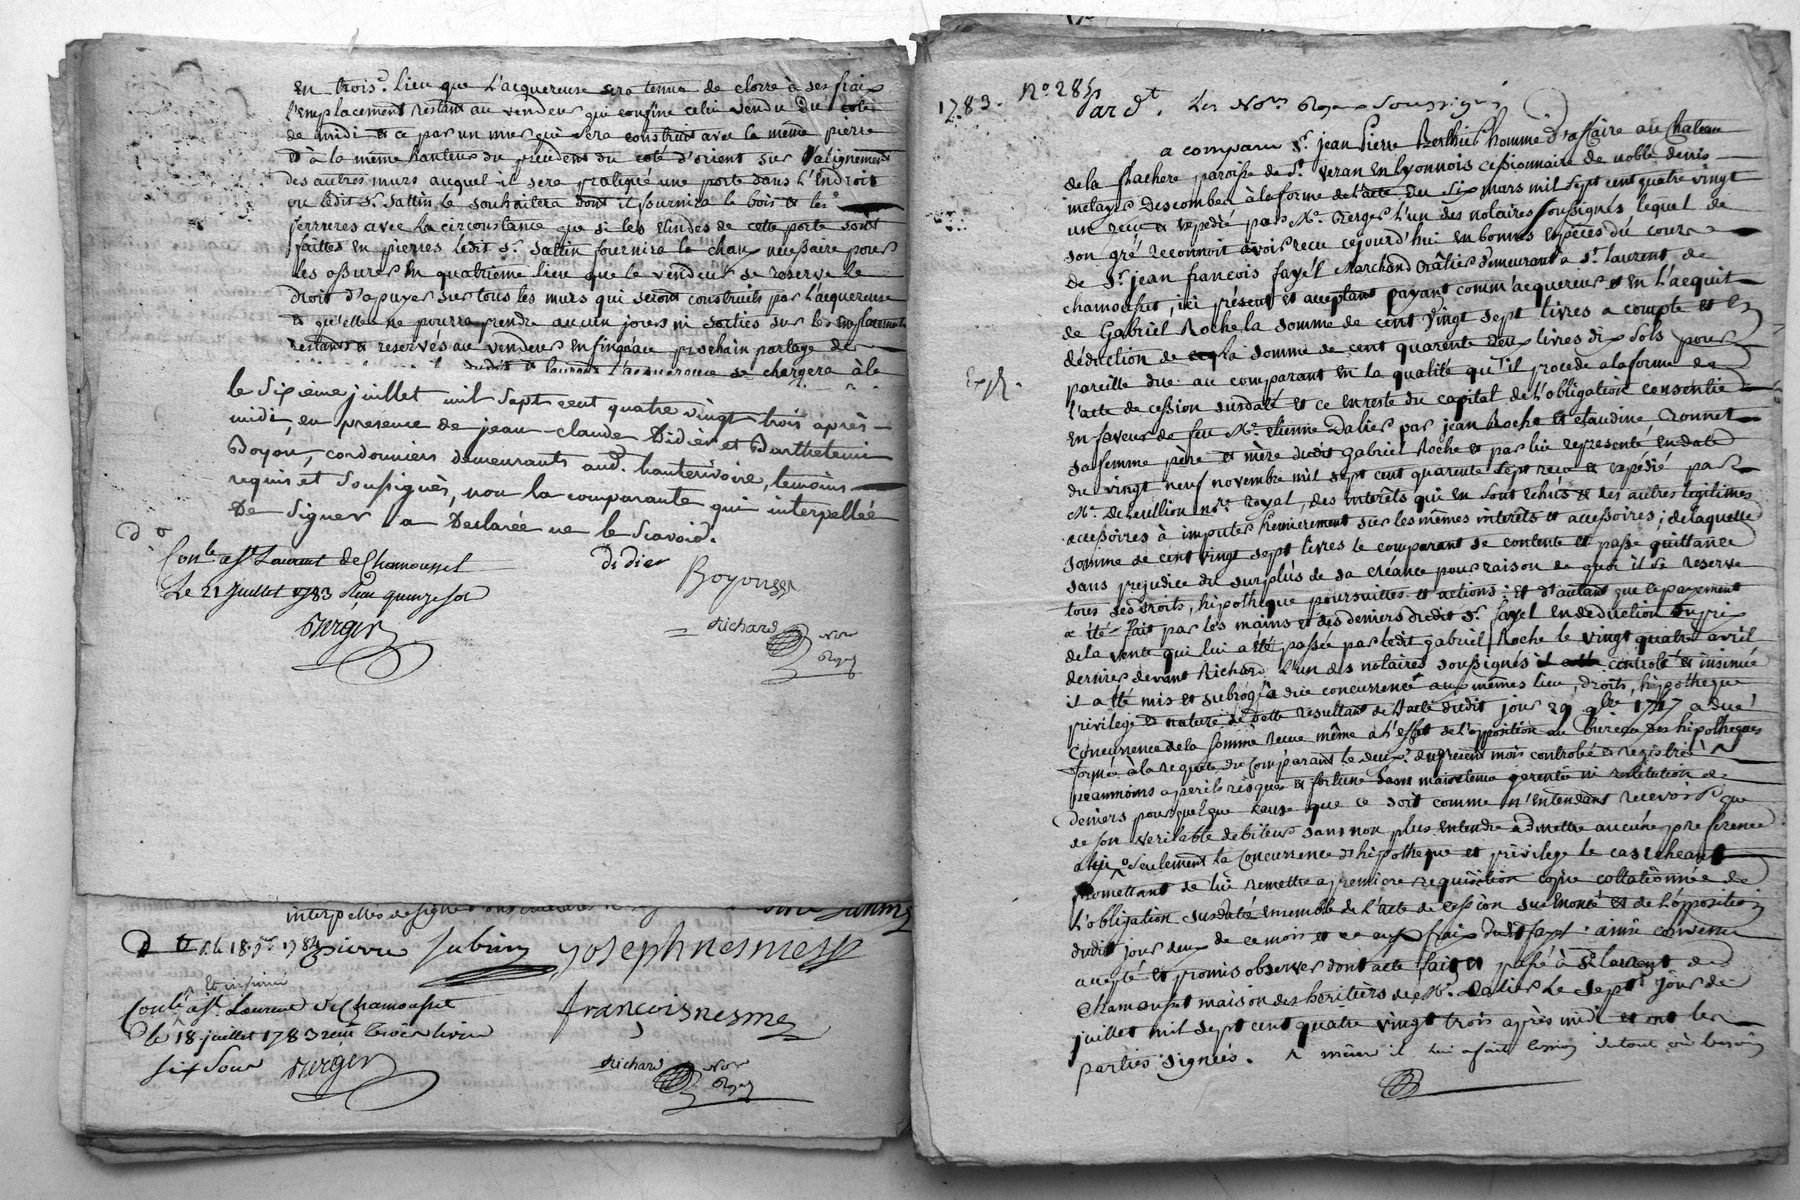 En trois.e lieu que l'acquereuse sera tenue de clorre à ses fraix
l'emplacement restant au vendeur qui confine celui vendu du coté
de midi et ce par un mur qui sera construit avec la même pierre
et à la même hauteur du précédent du coté d'orient sur l'alignement
des autres murs auquel il sera pratiqué une porte dans l'Endroit
ou ledit Sr. Sattin le souhaitera dont il fournira le bois et les
ferrures avec la circonstance que si les de cette porte sont
faittes en pierres ledit Sr. Sattin fournira la chaux necessaire pour
les assurer En quatrieme lieu que le vendeur se reserve le
droit d'apuyer sur tous les murs qui seront construits par l'acquereuse
et qu'elle ne pourra prendre aucun jours ni sorties sur les emplacements
restants et reservés au vendeur prochain partage de
l'acquereuse se chargera à la
le sixième juillet mil sept cent quatre vingt trois après
midi, en presence de jean-claude Didier et Barthelemi
Boyon, cordonniers demeurants aud. hauterivoire, temoins
requis et soussignés, non la comparante qui interpellée
De signer a Declarée ne le scavoir.
Conlé a St Laurent de Chamousset
Le 21 juillet 1783 Reçu quinze sol
Berger
didier
Boyon
Richard
Nore
Royal
interpellés de signer
le 18. 1784 pierre Subrin joseph nesme
Et insinué
Conlé a St. Laurent de Chamousset
le 18 juillet 1783 reçu livre
six sous Berger
françois nesme
Richard Nore
Royal
1783. No. 285
Par dt. Les Nores Royaux Soussignés
a comparu Sr. jean Pierre Berthier homme d'affaire au Chateau
de la flachere paroisse de St. Veran en Lyonnois cessionnaire de noble denis
Descombes à la forme de l'acte du six mars mil sept cent quatre vingt
un reçu et expedié par Me. Berger l'un des notaires soussignés lequel de
son gré reconnoit avoir recu cejourd'hui en bonnes espèces du cours
de Sr. jean francois fayet Marchand demeurant à St. laurent de
chamousset, ici présent et acceptant payant comm'acquereur et en l'acquit
de Gabriel Roche la somme de cent vingt sept livres a compte et en
déduction de la somme de cent quarente deux livres dix sols pour
pareille due au comparant en la qualité qu'il procede a la forme de
Exp.
l'acte de cession susdaté et ce en reste du capital de l'obligation consentie
en faveur de feu Me. etienne Dalier par jean Roche et claudine ronnet
sa femme père et mère dudit Gabriel Roche et par lui representé, en date
du vingt neuf novembre mil sept cent quarente sept reçu et expédié par
Me. nore. royal, des interêts qui en sont echûs et des autres legitimes
accessoires à imputer premierement sur les mêmes interêts et accessoires; de laquelle
somme de cent vingt sept livres le comparant se contente et passe quittance
sans prejudice du surplus de sa créance pour raison de quoi il se reserve
tous ses droits, hipotheque poursuites et actions; et d'autant que le payement
a été fait par les mains et des deniers dudit Sr. fayet en deduction du prix
de la vente qui lui a été passée par ledit gabriel Roche le vingt quatre avril
dernier devant Richard l'un des notaires soussignés controlé et insinué
il a été mis et subrogé à due concurrence aux mêmes lieu, droits, hipotheque
privilege et nature de dette resultant de l'acte dudit jour 29 9bre 1747 a due
concurrence de la somme recue même à l'effet de l'opposition au bureau des hipotheques
formée à la requete du comparant le deux.e du present mois controlé et registré
neanmoins a perils risques et fortune sans maintenue garentie ni restitution de
deniers pour quelque cause que ce soit comme n'entendant recevoir que
de son veritable debiteur sans non plus entendre admettre aucune preference
seulement la concurrence d'hipotheque et privilege le cas echeant
promettant de lui remettre a premiere requisition copie collationnée de
l'obligation susdatée ensemble de l'acte de cession sus enoncé et de l'opposition
dudit jour deux de ce mois et ce aux fraix dudit fayet: ainsi convenu
accepté et promis observer dont acte fait et passé à St. laurent de
chamousset maison des heritiers de Me. Dalier le sept jour de
juillet mil sept cent quatre vingt trois après midi et ont les
parties signées.